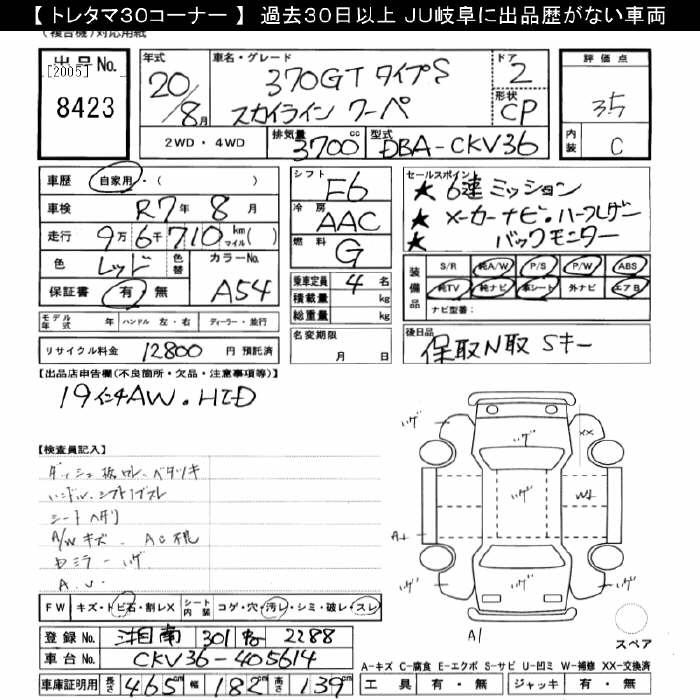 【 トレタマ30コーナー 】 過去30日以上 JU岐阜に出品歴がない車両
(複合機)対応用紙
出 品 No.
[2005]
8423
年式
20/8月
車名・グレード
370GT タイプS
スカイライン クーペ
ドア
2
形状
CP
評 価 点
3.5
内装
C
2WD ・ 4WD
排気量
3700cc
型式
DBA-CKV36
車歴 自家用・( )
車検 R7年 8月
走行 9万6千710 km マイル( )
色 レッド 色替 カラーNo.
保証書 有 無 A54
モデル年式 年 ハンドル 左・右 ディーラー・並行
リサイクル料金 12800 円 預託済
シフト
F6
冷房
AAC
燃料
G
乗車定員 4 名
積載量 kg
総重量 kg
名変期限
月 日
セールスポイント
★ 6速ミッション
★ メーカーナビ・ハーフレザー
★ バックモニター
装備品
S/R 純A/W P/S P/W ABS
純TV 純ナビ 革シート 外ナビ エアB
ナビ型番:
後日品
保取N取 Sキー
【出品店申告欄(不良箇所・欠品・注意事項等)】
19インチAW・HID
【検査員記入】
ハンドル、シフト
シート
A/W キズ、
A.U.
イゲ
イゲ
××
イゲ
W1
A1
イゲ
イゲ
A1
スペア
FW キズ・トビ石・割レX シート内装 コゲ・穴・汚レ・シミ・破レ・スレ
登録 No. 湘南 301 2288
車台 No. CKV36-405614
車庫証明用 長さ 465 幅 182 高さ 139 cm
A-キズ C-腐食 E-エクボ S-サビ U-凹ミ W-補修 XX-交換済
工 具 有 ・ 無 ジャッキ 有 ・ 無